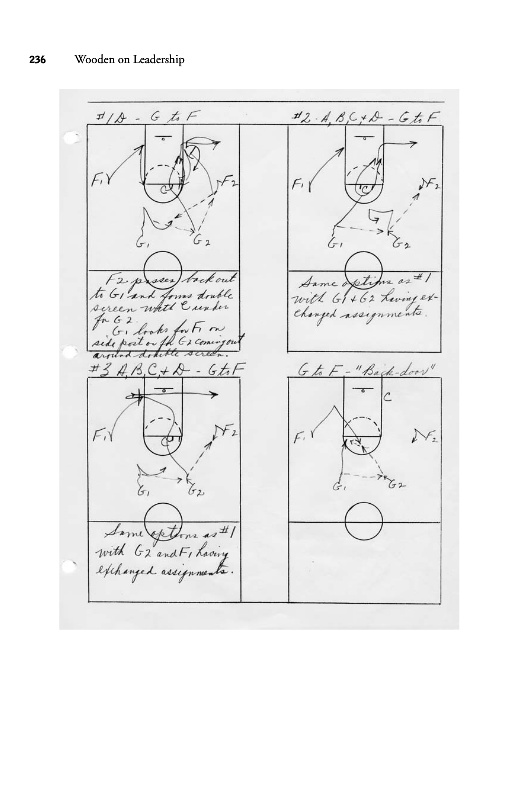 236 Wooden on Leadership
#1 D - G to F
F1
F2
C
G1
G2
F2 passes back out
to G1 and forms double
screen with C under
for G2.
G1 looks for F1 on
side post or for G2 coming out
around double screen.
#2 - A, B, C, + D - G to F
F1
F2
C
G1
G2
Same options as #1
with G1 + G2 having ex-
changed assignments.
#3 A, B, C, + D - G to F
F1
F2
C
G1
G2
Same options as #1
with G2 and F1 having
exchanged assignments.
G to F - "Back-door"
C
F1
F2
G1
G2